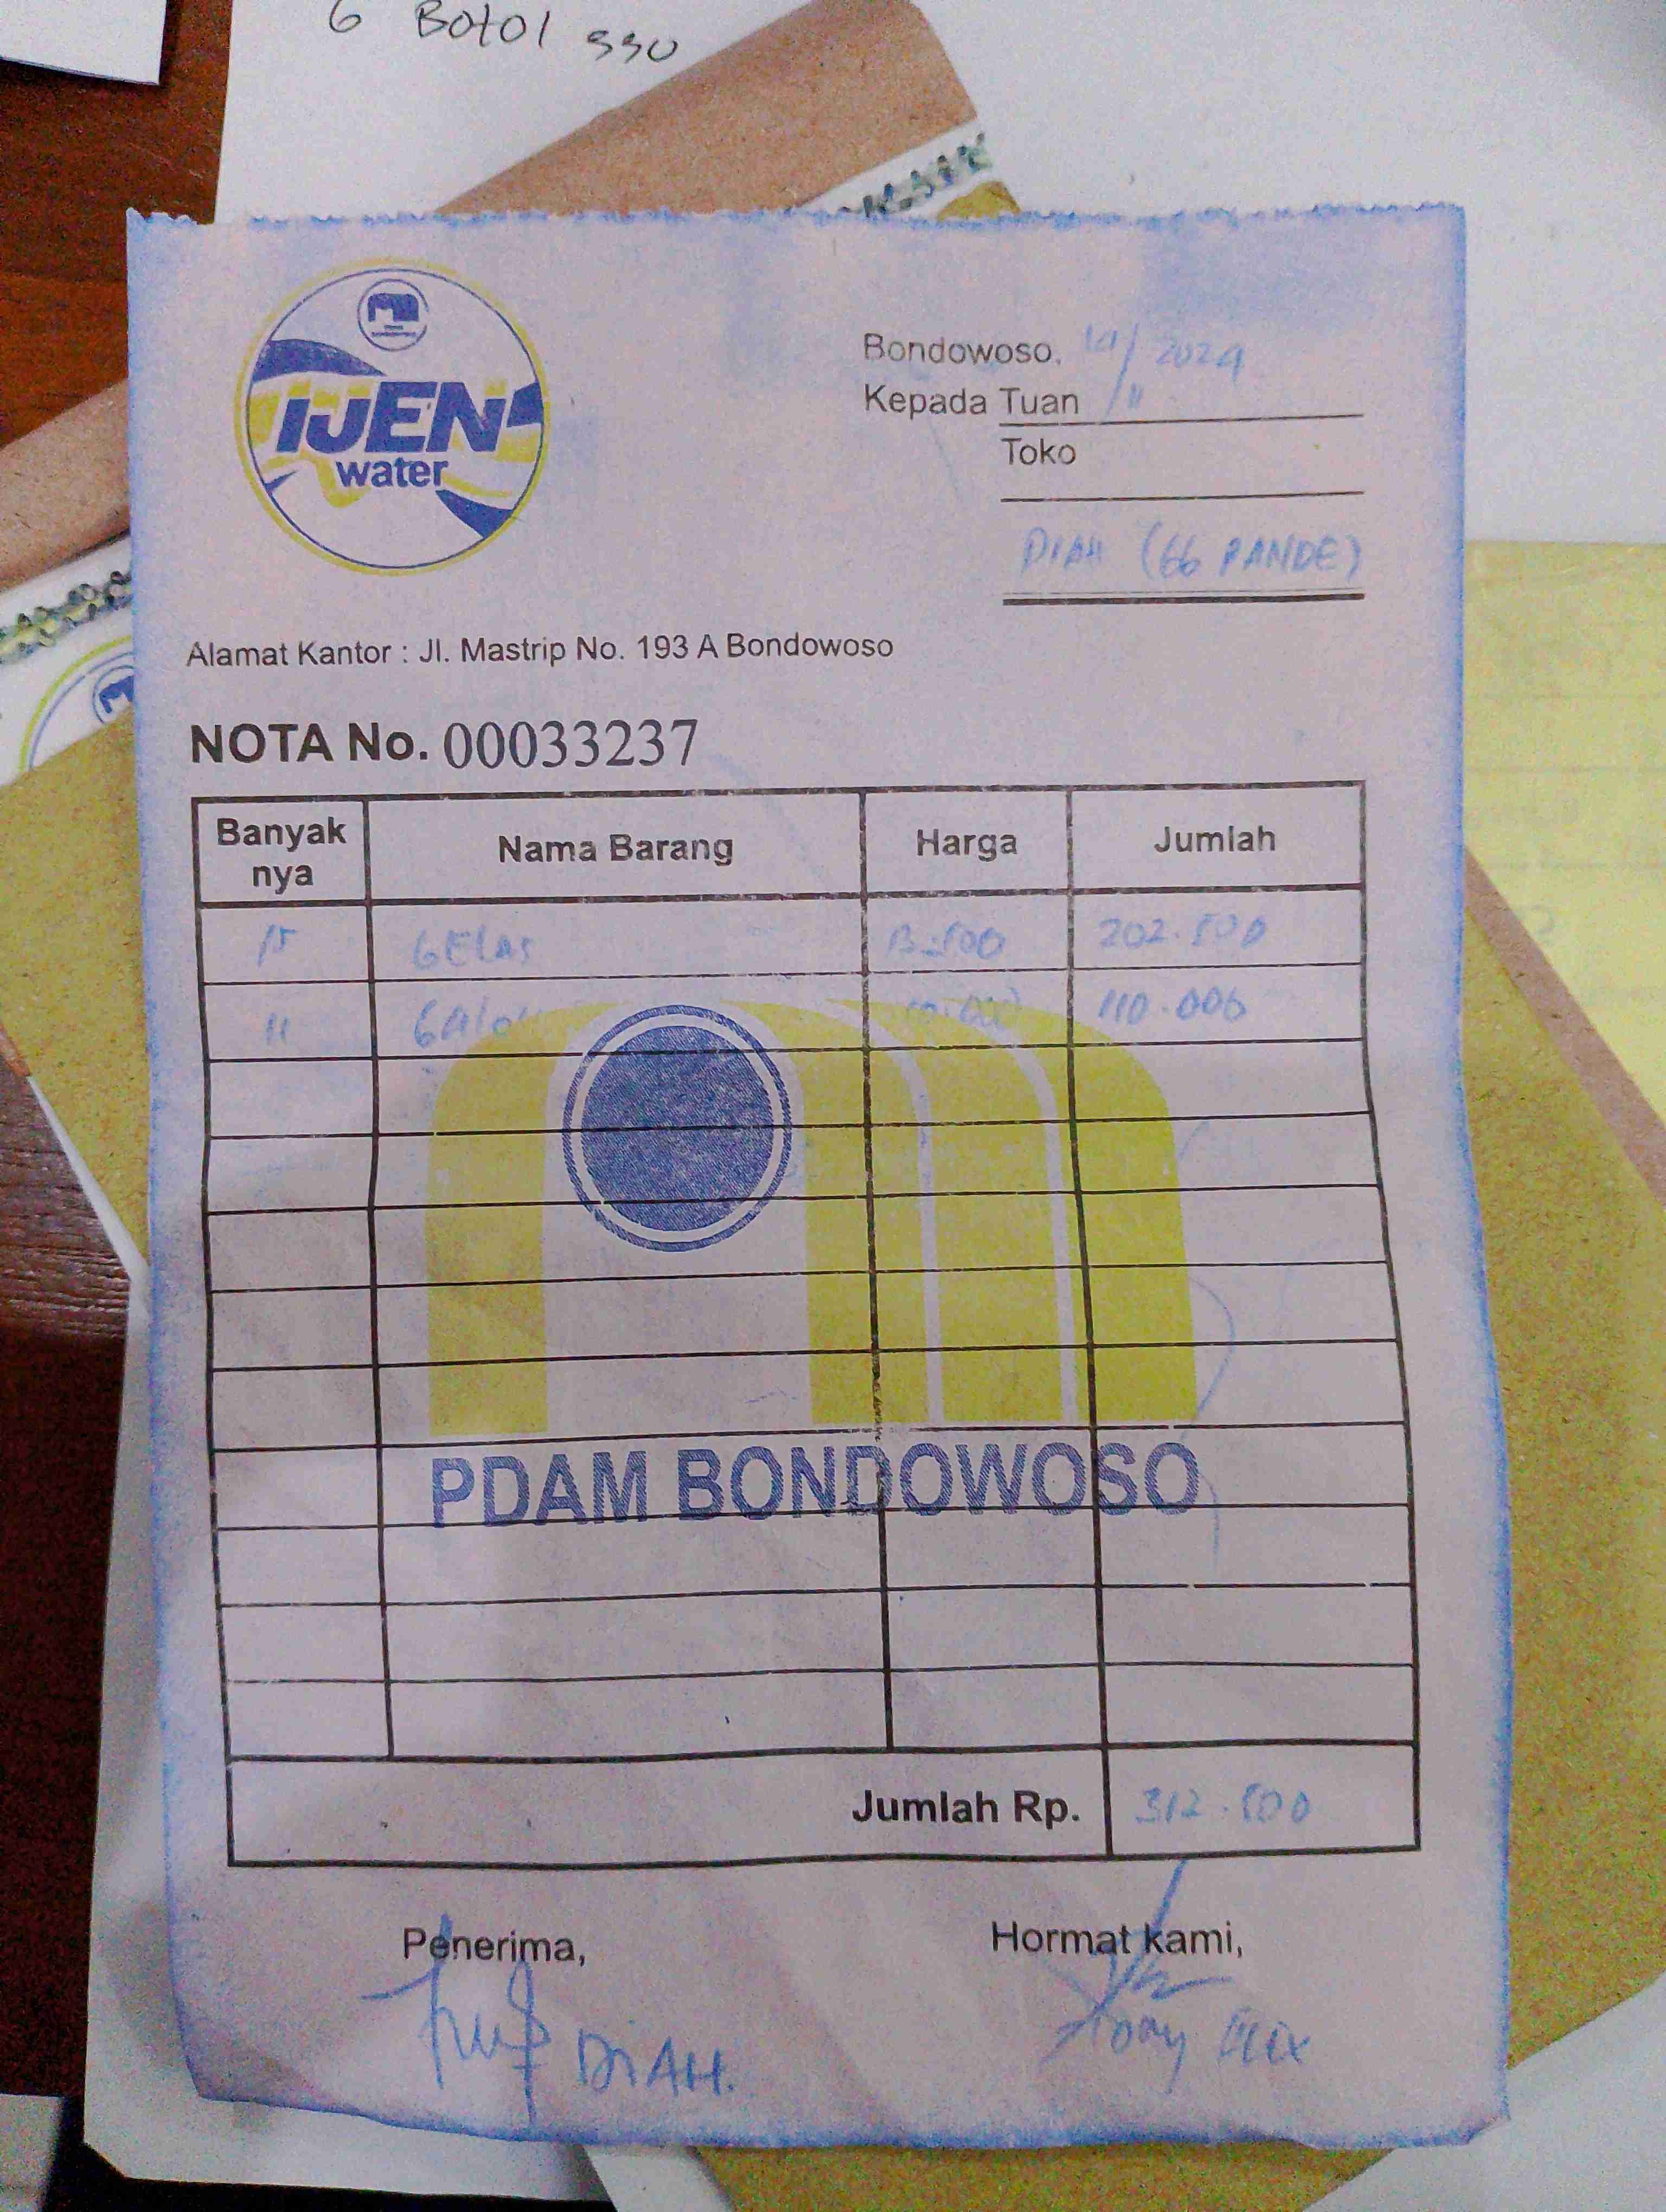 6 Botol 330
IJEN
water
Bondowoso, 2024
Kepada Tuan
Toko
DIAH (66 PANDE)
Alamat Kantor : Jl. Mastrip No. 193 A Bondowoso
NOTA No. 00033237
Banyak nya Nama Barang Harga Jumlah
15 GElas 13.500 202.500
11 GAlon 10.000 110.000
PDAM BONDOWOSO
Jumlah Rp. 312.500
Penerima, Hormat kami,
DiAH.